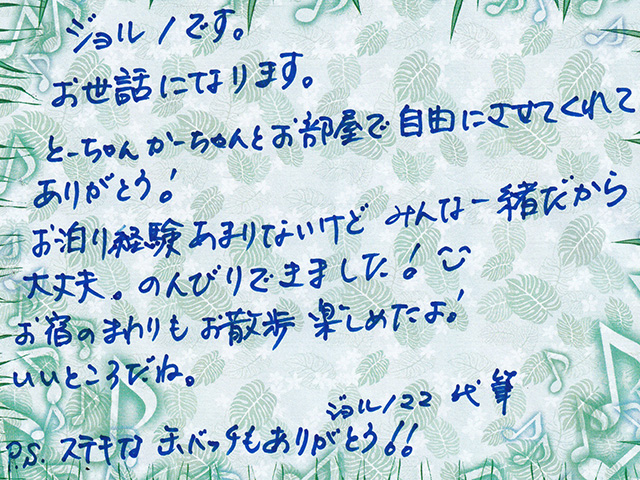 ジョルノです。
お世話になります。
とーちゃん かーちゃんとお部屋で自由にさせてくれて
ありがとう!
お泊り経験あまりないけど みんな一緒だから
大丈夫。のんびりできました!
お宿のまわりもお散歩 楽しめたよ!
いいところだね。
ジョルノ 代筆
P.S. ステキな 缶バッチもありがとう!!